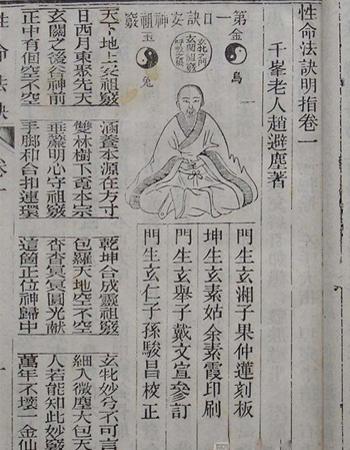 性命法訣明指卷一
千峯老人趙避塵著
第一口訣安神祖竅
金烏
玉兔
門生玄湘子果仲蓮刻板
坤生玄素姑余素霞印刷
門生玄舉子戴文宣參訂
門生玄仁子孫駿昌校正
天下地上安祖竅 涵養本源在方寸 乾坤合成靈祖竅 玄牝妙兮不可言
日西月東聚先天 雙林樹下覔本宗 包羅天地空不空 細入微塵大包天
玄關之後谷神前 垂簾明心守祖竅 杳杳冥冥圓光献 人若能知此妙竅
正中有個空不空 手脚和合扣連環 這箇正位神歸中 萬年不壞一金仙
性命法訣 卷一